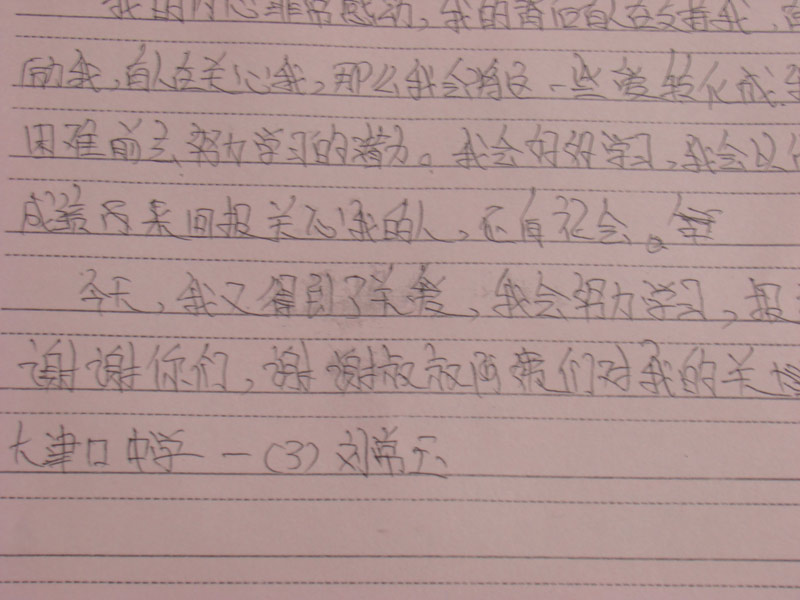 我的内心非常感动,我的背后有人在支持我,有
励我,有人在关心我,那么我会将这一些爱转化成
困难前去努力学习的潜力。我会好好学习,我会以
成绩后来回报关心我的人,还有社会。
今天,我又得到了关爱,我会努力学习,报
谢谢你们,谢谢叔叔阿姨们对我的关
大津口中学一(3)刘常玉